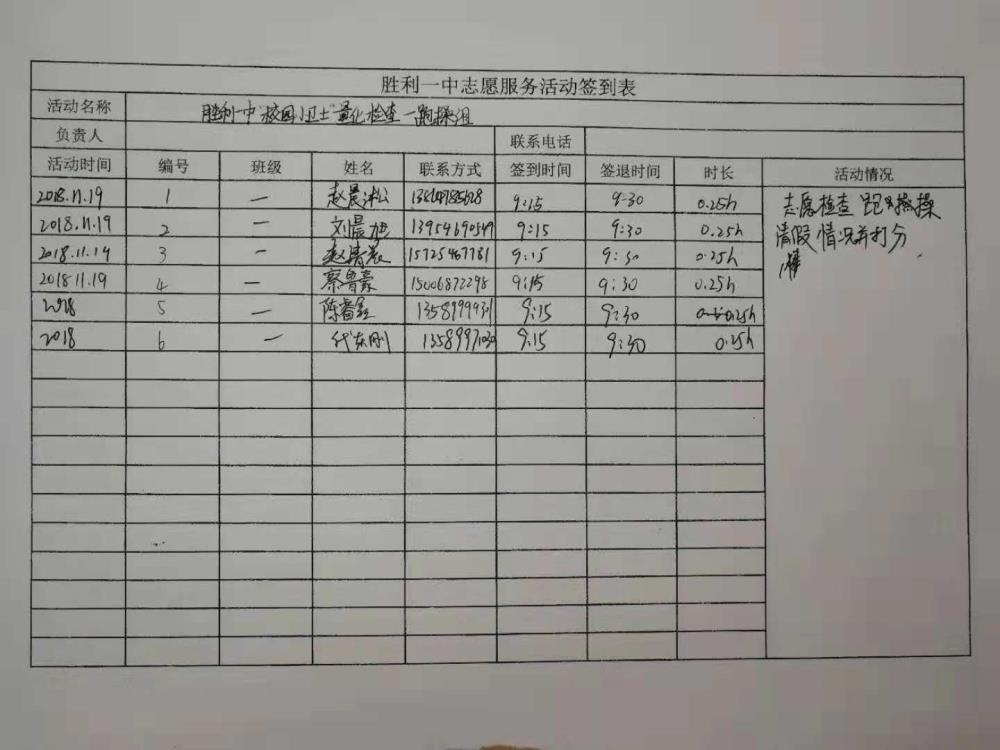 胜利一中志愿服务活动签到表
活动名称 胜利一中"校园卫士"量化检查—跑操组
负责人 联系电话
活动时间 编号 班级 姓名 联系方式 签到时间 签退时间 时长 活动情况
2018.11.19 1 一 赵晨淞 9:15 9:30 0.25h 志愿检查跑操
2018.11.19 2 一 刘晨旭 13954690549 9:15 9:30 0.25h 请假情况并打分
2018.11.19 3 一 15725467781 9:15 9:30 0.25h
2018.11.19 4 一 蔡鲁豪 15006872298 9:15 9:30 0.25h
2018 5 一 陈睿鑫 9:15 9:30 0.25h
2018 6 一 代东刚 9:15 9:30 0.25h